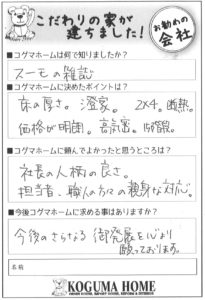 こだわりの家が
建ちました!
お勧めの
会社
■コグマホームは何で知りましたか?
スーモの雑誌
■コグマホームに決めたポイントは?
床の厚さ。 2×4。断熱。
価格が明囲。高気密。
■コグマホームに頼んでよかったと思うところは?
社長の人柄の良さ。
担当者、職人の方々の親身な対応。
■今後コグマホームに求める事はありますか?
今後のさらなる御発展を心より
願っております。
名前
KOGUMA HOME